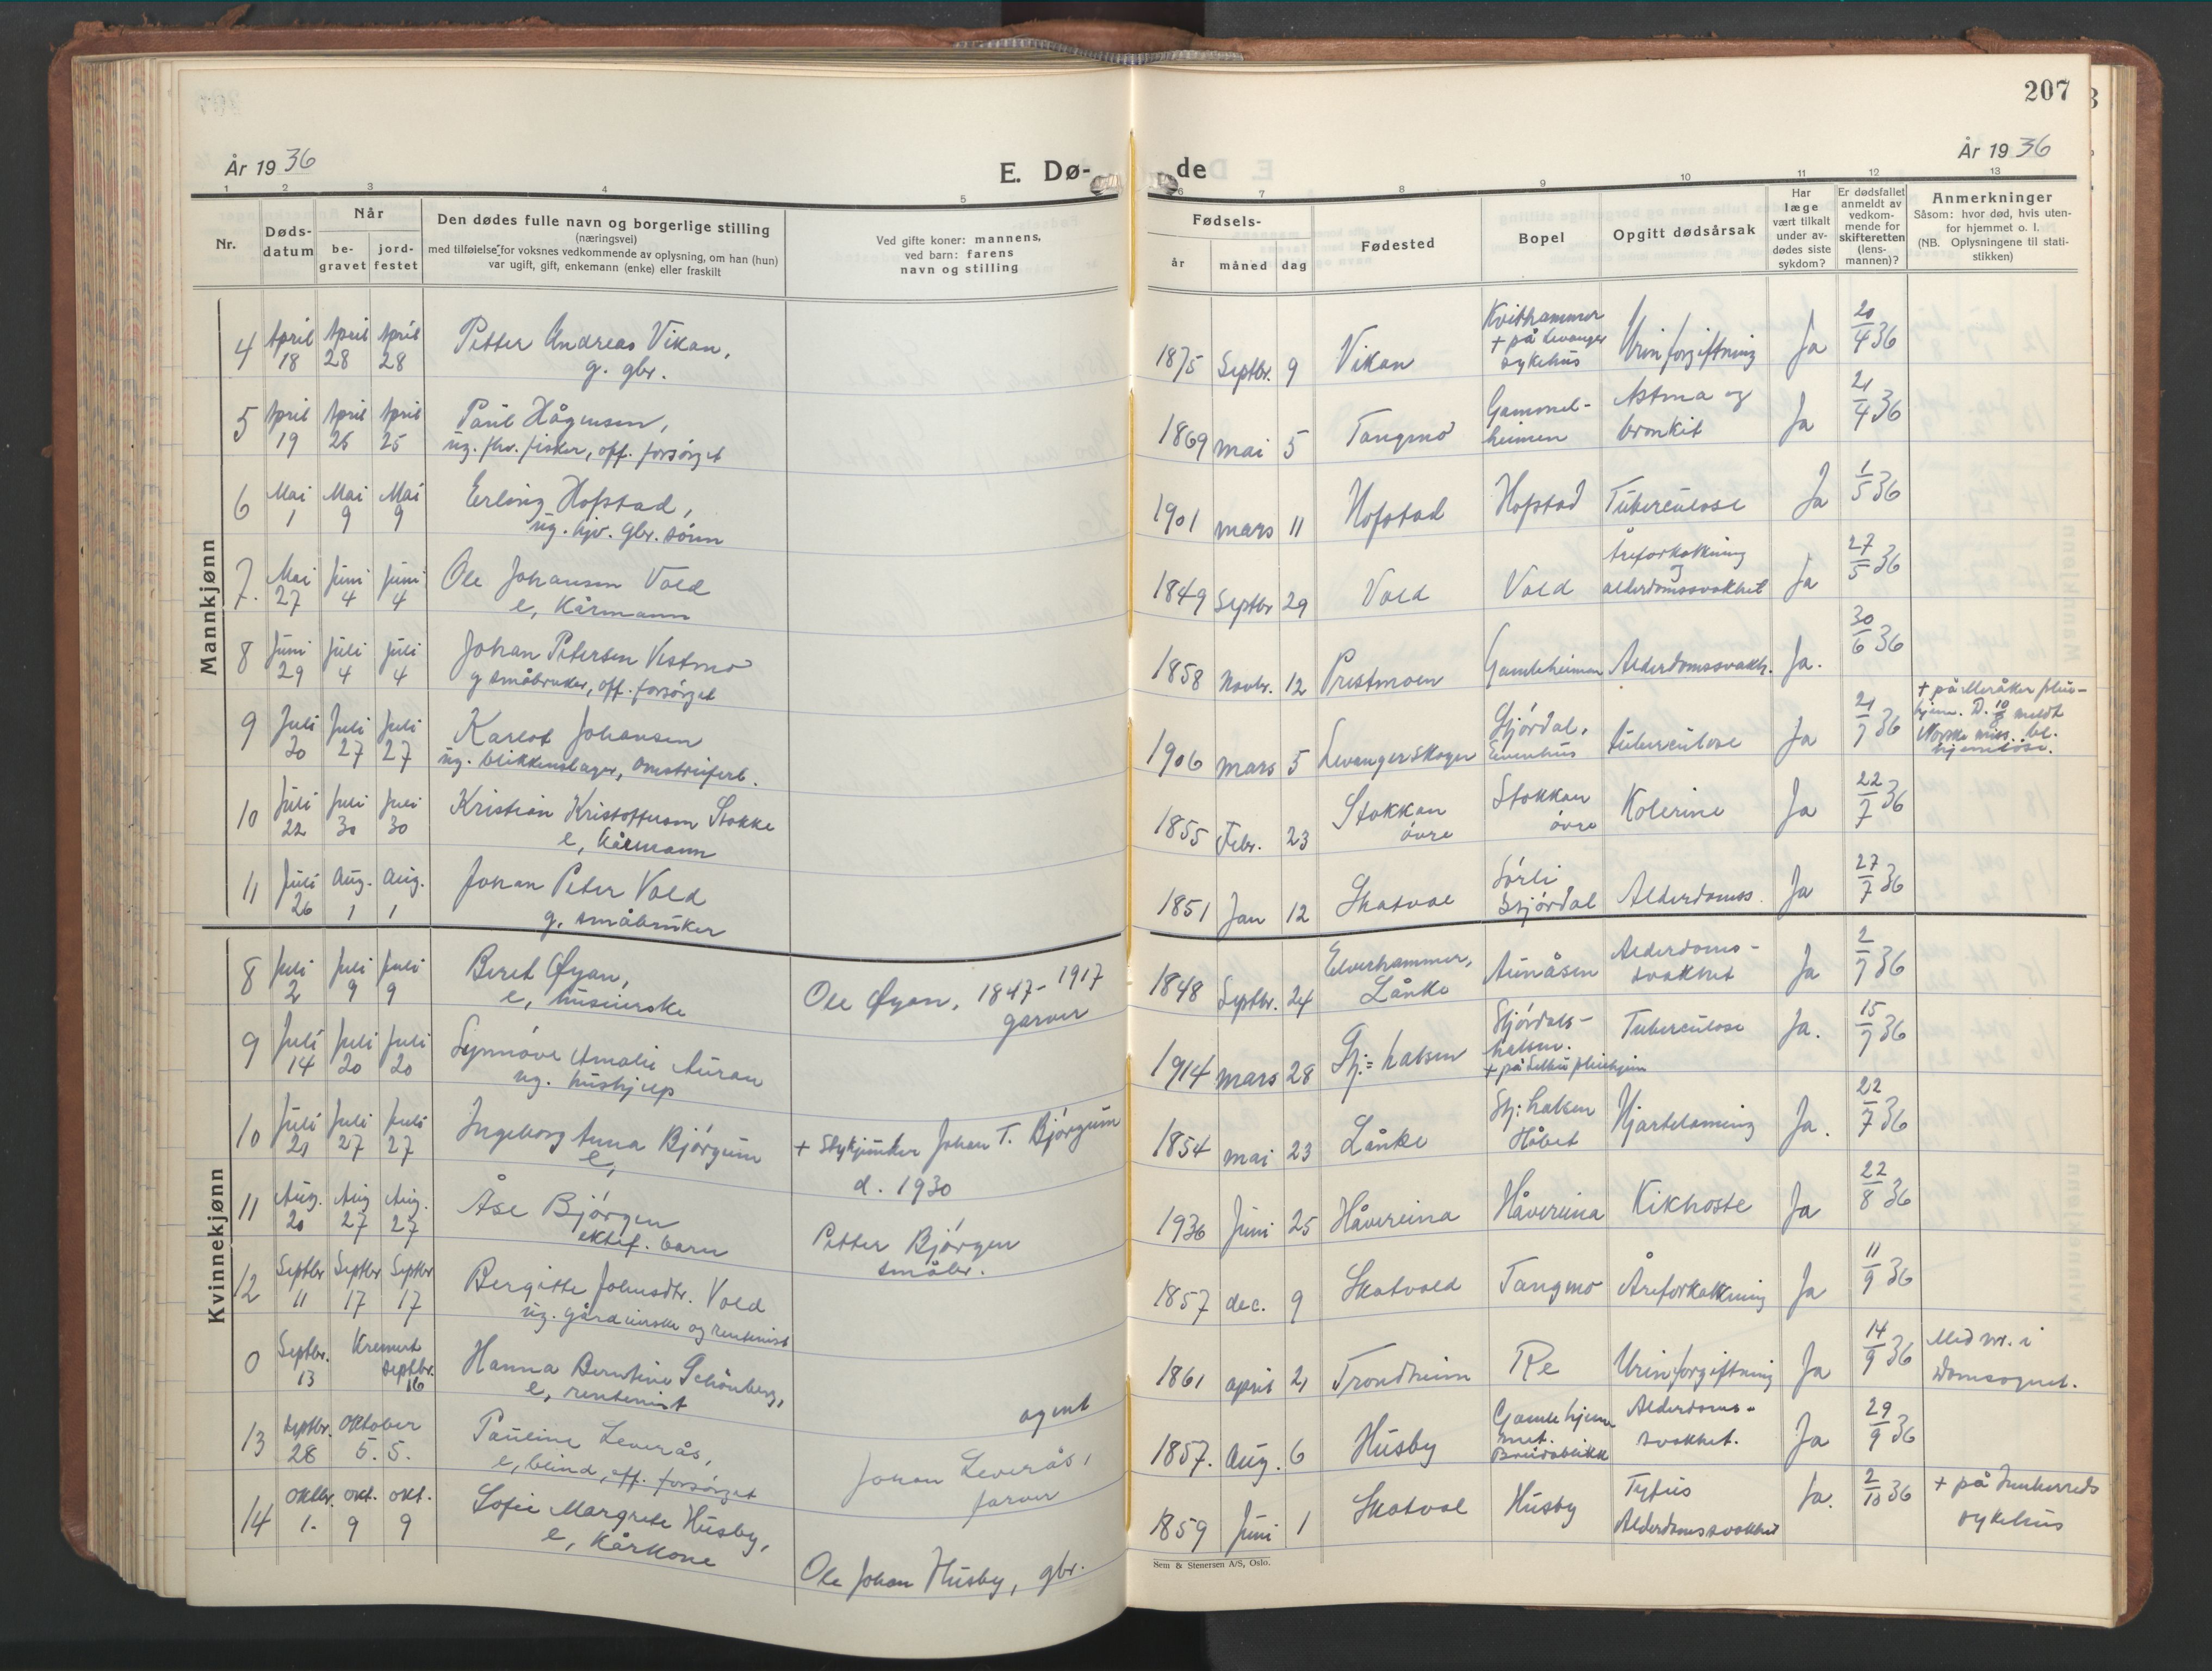 207
År 1936
E. Dø-
de
År 1936
1 2 3 4 5 6 7 8 9 10 11 12 13
Nr.
Døds-
datum
Når
be-
gravet
jord-
festet
Den dødes fulle navn og borgerlige stilling
(næringsvei)
med tilføielse for voksnes vedkommende av oplysning, om han (hun)
var ugift, gift, enkemann (enke) eller fraskilt
Ved gifte koner: mannens,
ved barn: farens
navn og stilling
Fødsels-
år måned dag
Fødested
Bopel
Opgitt dødsårsak
Har
læge
vært tilkalt
under av-
dødes siste
sykdom?
Er dødsfallet
anmeldt av
vedkom-
mende for
skifteretten
(lens-
mannen)?
Anmerkninger
Såsom: hvor død, hvis uten-
for hjemmet o. l.
(NB. Oplysningene til stati-
stikken)
Mannkjønn
4 April 18 April 28 April 28 Petter Andreas Vikan,
g. gbr.
1875 Septbr. 9 Vikan Kvithammer
+ på Levanger
sykehus
Urinforgiftning Ja 20/4 36
5 April 19 April 25 April 25 Paul Hågensen,
ug. fhv. fisker, off. forsørget
1869 mai 5 Tangmo Gammel-
heimen
Astma og
bronkit
Ja 21/4 36
6 Mai 1 Mai 9 Mai 9 Erling Hofstad,
ug. hjv. gbr. sønn
1901 mars 11 Hofstad Hofstad Tuberculose Ja 1/5 36
7. Mai 27 Juni 4 Juni 4 Ole Johansen Vold
e, Kårmann
1849 Septbr 29 Vold Vold Åreforkalkning
og
alderdomssvakhet
Ja 27/5 36
8 Juni 29 Juli 4 Juli 4 Johan Petersen Vestmo
g småbruker, off. forsørget
1858 Novbr. 12 Prestmoen Gamleheimen Alderdomssvakh. Ja. 30/6 36
9 Juli 20 Juli 27 Juli 27 Karlot Johansen
ug. blikkenslager, omstreiferb.
1906 mars 5 Levangerskogen Stjørdal,
tuberculose Ja 21/7 36
+ på Meråker pleie-
hjem. D. 10/8 meldt
Norske miss. bl.
hjemløse.
10 Juli 22 Juli 30 Juli 30 Kristian Kristoffersen Stokke
e, Kårmann
1855 Febr. 23 Stokkan
øvre
Stokkan
øvre
Kolerine Ja 22/7 36
11 Juli 26 Aug. 1 Aug. 1 Johan Peter Vold
g, småbruker
1851 Jan 12 Skatval Sørli
Stjørdal
Alderdomss. Ja 27/7 36
Kvinnekjønn
8 Juli 2 Juli 9 Juli 9 Beret Øyan,
e, husmorske
Ole Øyan, 1847-1917
garver
1848 Septbr. 24 Elverhammer,
Lånke
Aunåsen Alderdoms-
svakhet
Ja 2/7 36
9 Juli 14 Juli 20 Juli 20 Synnøve Amalie Auran
ug. hushjelp
1914 mars 28 Stj.=halsen Stjørdals-
halsen.
+ på Selbu pleiehjem
Tuberculose Ja. 15/7 36
10 Juli 21 Juli 27 Juli 27 Ingeborg Anna Bjørgum
e,
+ Stykjunker Johan T. Bjørgum
d. 1930
1854 mai 23 Lånke Stj: halsen
Håbet
Hjartelamming Ja. 22/7 36
11 Aug. 20 Aug 27 Aug. 27 Åse Bjørgen
ektef. barn
Petter Bjørgen
småbr.
1936 Juni 25 Håvereina Håvereina Kikhoste Ja 22/8 36
12 Septbr 11 Septbr 17 Septbr 17 Bergitte Johnsdtr. Vold
ug. gårdeierske og rentenist
1857 dec. 9 Skatvold Tangmo Åreforkalkning Ja 11/9 36
0 Septbr. 13 Kremert Septbr. 16 Hanna Berntine Schönberg,
e, rentenist
agent
1861 april 21 Trondheim Re Urinforgiftning Ja 14/9 36
Med nr. i
Domsognet.
13 Septbr. 28 Oktober 5. 5. Pauline Leverås,
e, blind, off. forsørget
Johan Leverås,
farver
1857. Aug. 6 Husby Gamlehjem-
met.
Breidablikk
Alderdoms-
svakhet.
Ja 29/9 36
14 Oktbr. 1. Okt. 9 Okt. 9 Sofie Margrete Husby,
e, Kårkone
Ole Johan Husby, gbr.
1859 Juni 1 Skatval Husby Tyfus
Alderdomssvakhet
Ja. 2/10 36
+ på Innherreds
sykehus
Sem & Stenersen A/S, Oslo.